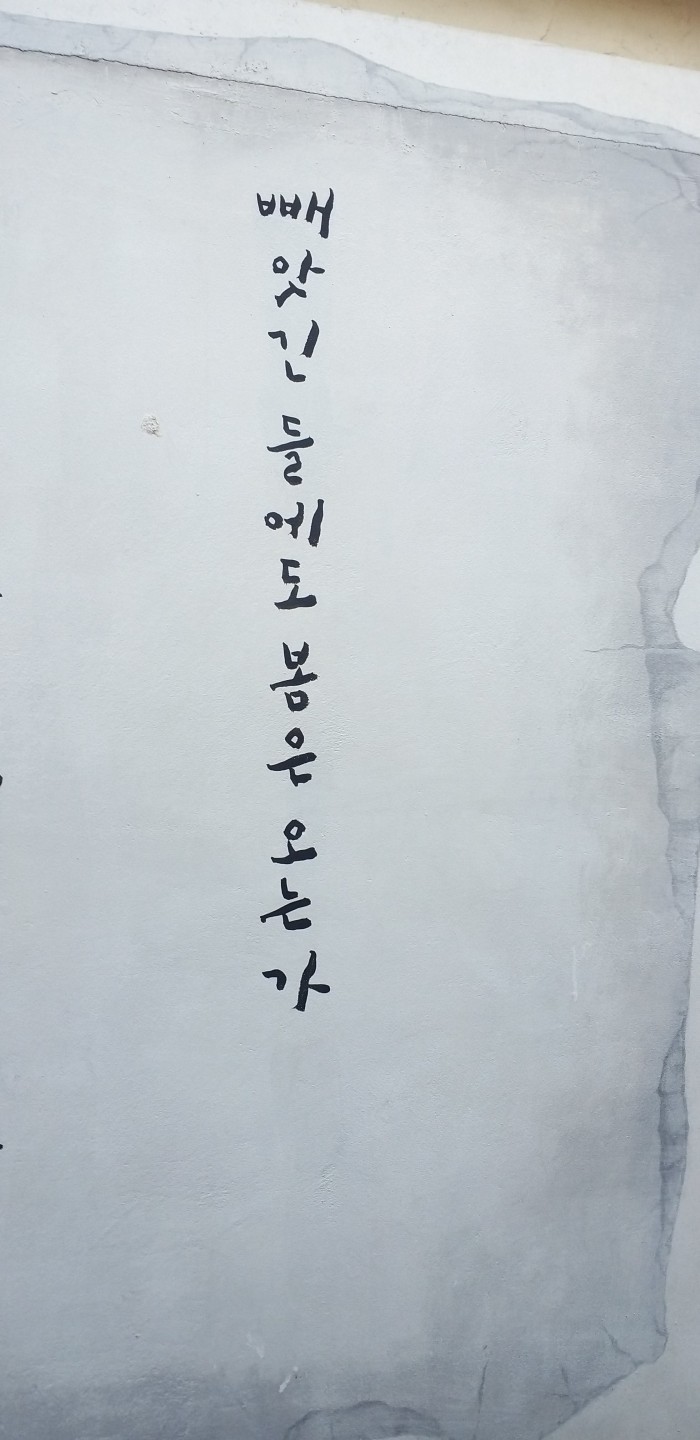 빼앗긴 들에도 봄은 오는가